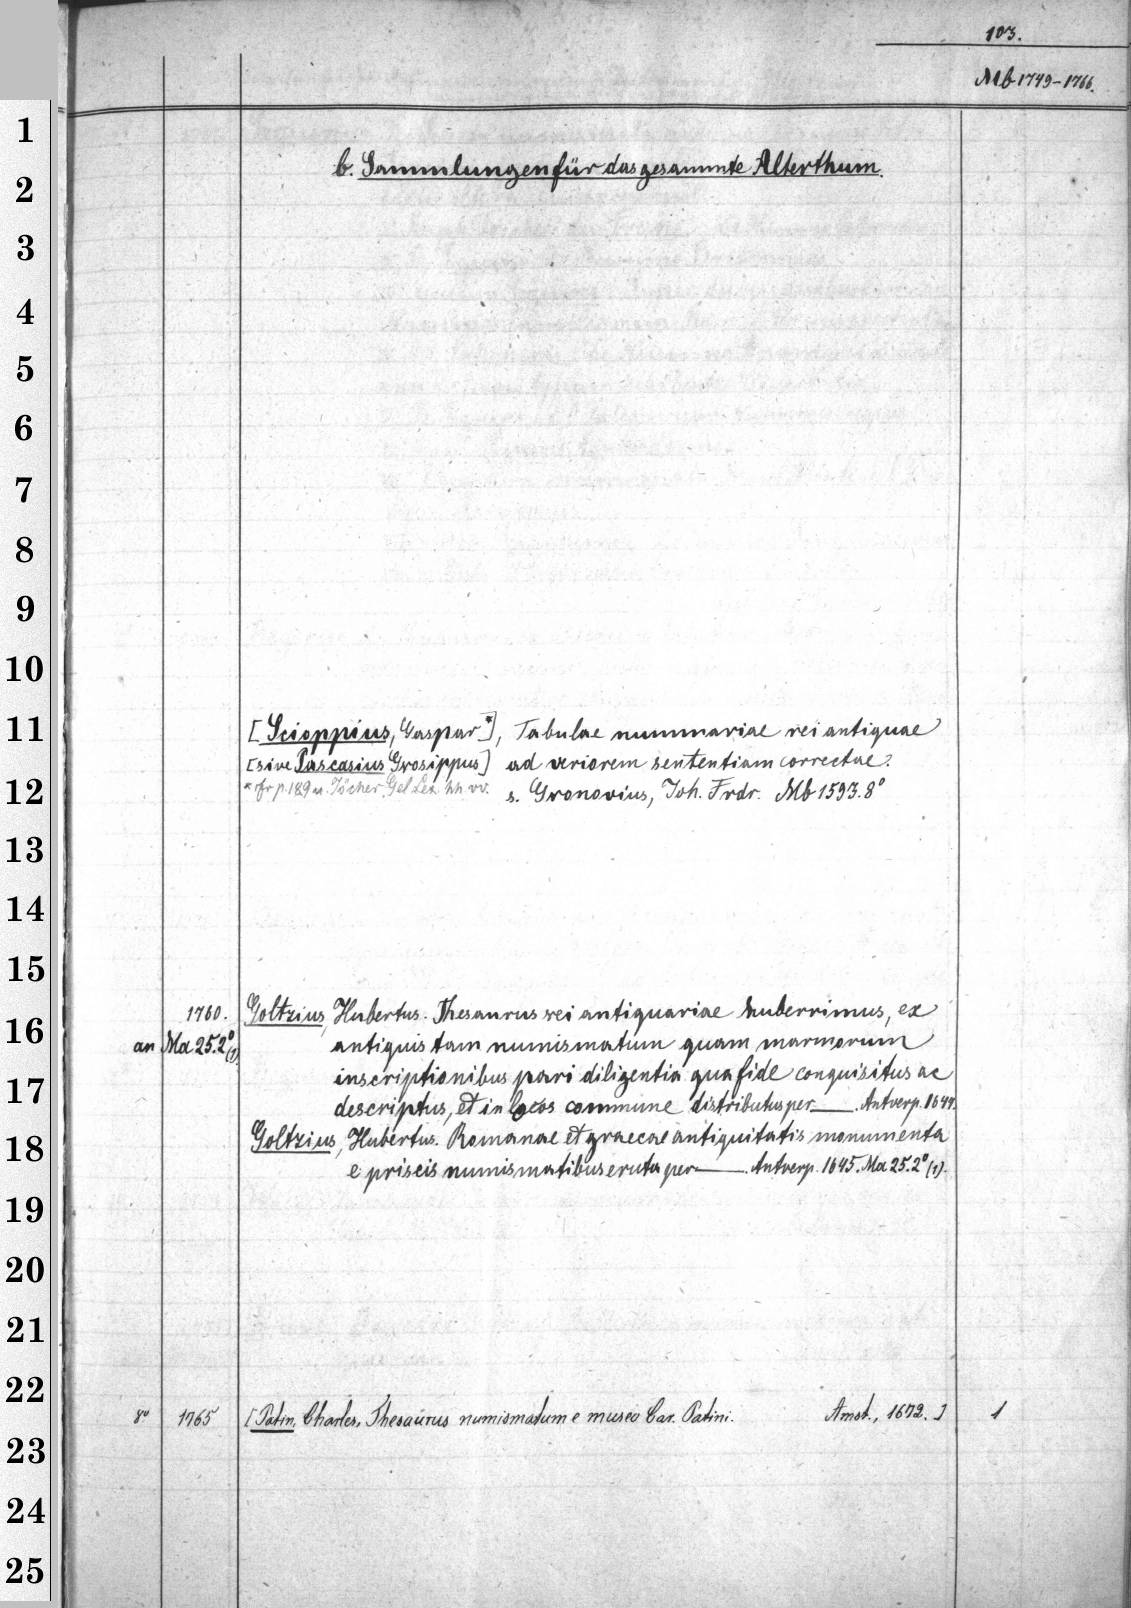 103.
Mb 1749-1766.
1
b. Sammlungen für das gesammte Alterthum.
2
3
4
5
6
7
8
9
10
11 [Scioppius, Gaspar*], Tabulae nummariae rei antiquae
[sive Pascasius Grosippus] ad veriorem sententiam correctae.
12 * cfr p. 189 u. Jöcher Gel Lex hh vv. s. Gronovius, Joh. Frdr. Mb 1593. 8°
13
14
15
1760. Goltzius, Hubertus. Thesaurus rei antiquariae huberrimus, ex
16 an Ma 25.2° (1) antiquis tam numismatum quam marmorum
17 inscriptionibus pari diligentia qua fide conquisitus ac
descriptus, et in locos commune distributus per ——. Antverp. 1644.
18 Goltzius, Hubertus. Romanae et graecae antiquitatis monumenta
e priscis numismatibus eruta per ——. Antverp. 1645. Ma 25.2° (1).
19
20
21
22
8° 1765 [Patin, Charles, Thesaurus numismatum e museo Car. Patini. Amst., 1672.] 1
23
24
25